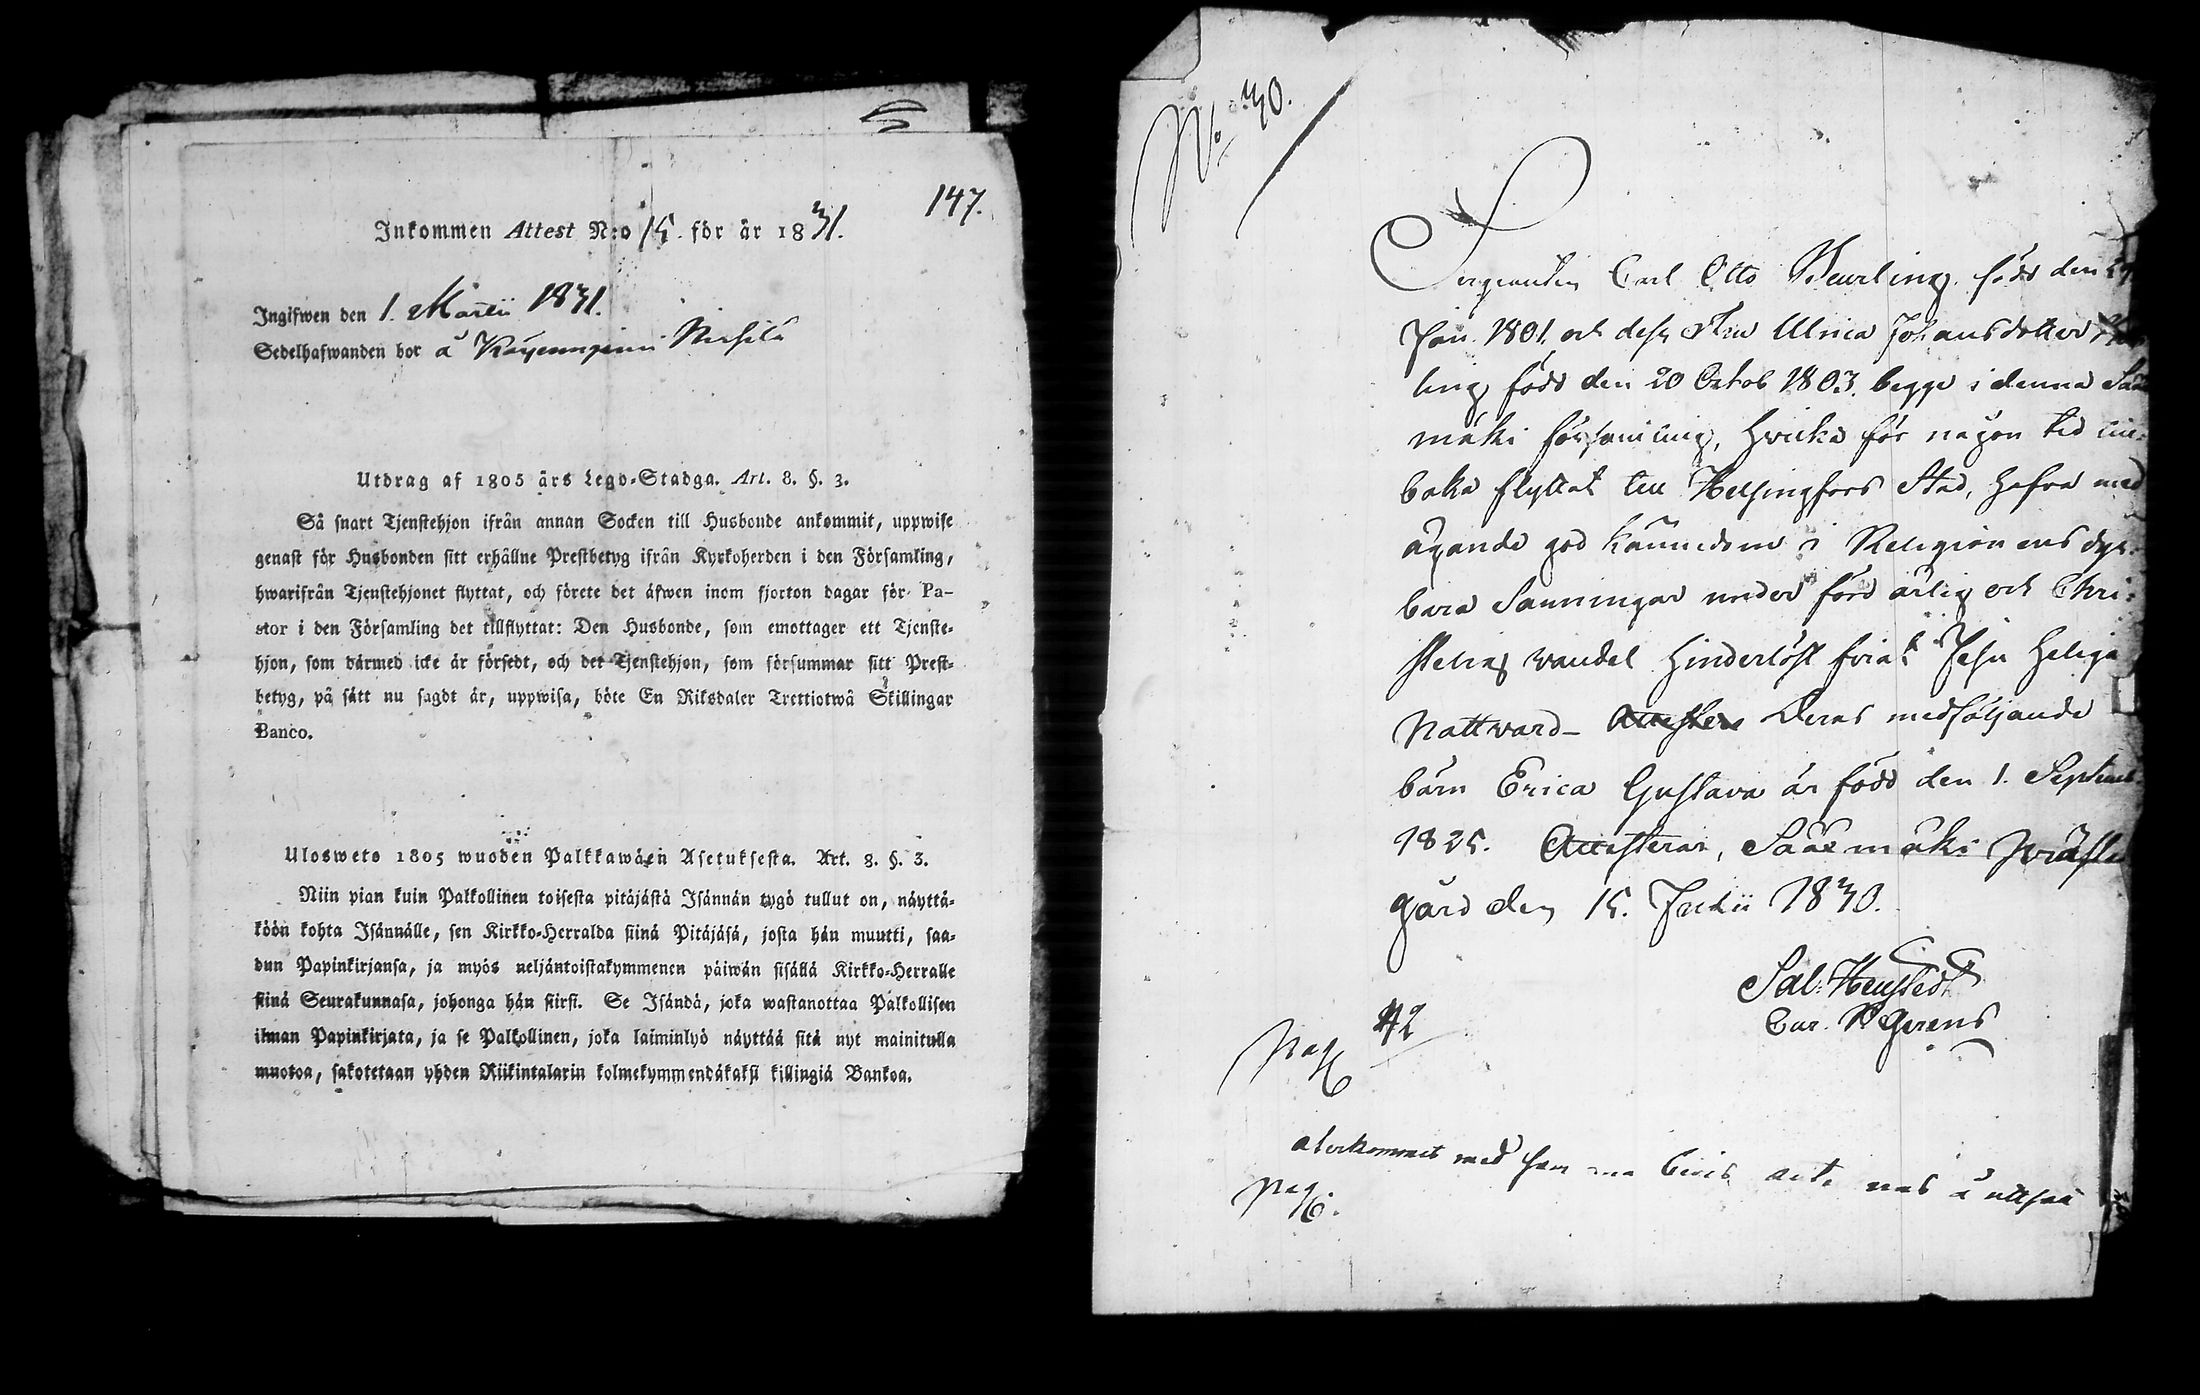 147.
Inkommen Attest N:o 15. för år 1831.
Ingifwen den 1. Martii 1831.
Sedelhafwanden bor å
Utdrag af 1805 års Lego-Stadga. Art. 8. §. 3.
Så snart Tjenstehjon ifrån annan Socken till Husbonde ankommit, uppwise
genast för Husbonden sitt erhållne Prestbetyg ifrån Kyrkoherden i den Församling,
hwarifrån Tjenstehjonet flyttat, och förete det äfwen inom fjorton dagar för Pa-
stor i den Församling det tillflyttat: Den Husbonde, som emottager ett Tjenste-
hjon, som därmed icke är försedt, och det Tjenstehjon, som försummar sitt Prest-
betyg, på sätt nu sagdt är, uppwisa, böte En Riksdaler Trettiotwå Skillingar
Banco.
Ulosweto 1805 wuoden Palkkawäen Asetuksesta. Art. 8. §. 3.
Niin pian kuin Palkollinen toisesta pitäjästä Isännän tygö tullut on, näyttä-
köön kohta Isännälle, sen Kirkko-Herralda siinä Pitäjäsä, josta hän muutti, saa-
dun Papinkirjansa, ja myös neljäntoistakymmenen päiwän sisällä Kirkko-Herralle
siinä Seurakunnasa, johonga hän siirsi. Se Isändä, joka wastanottaa Palkollisen
ilman Papinkirjata, ja se Palkollinen, joka laiminlyö näyttää sitä nyt mainitulla
muotoa, sakotetaan yhden Riikintalarin kolmekymmendäkaksi killingiä Bankoa.
No 30.
Sergeanten Carl Otto Beurling född den
Jan. 1801. och dess Fru Ulrica Johansdotter
ling född den 20 Octob 1803. begge i denna Sääx
mäki församling, hwilka för någon tid till-
baka flyttat till Helsingfors Stad, hafva med
ägande god kännedom i Religionens dyr-
bara Sanningar under förd ärlig och Chri-
stelig vandel hinderlöst friat Jesu Heliga
Nattvard- Deras medföljande
barn Erica Gustava är född den 1. Septemb
1825. Attesterar, Sääxmäki Präste
gård den 15. Julii 1830.
Sal: Henstedt
Cur. V Gerens
pag 42
återkommit med samma
pag.